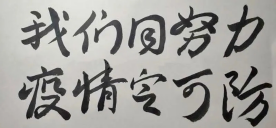 我们同努力
疫情定可防